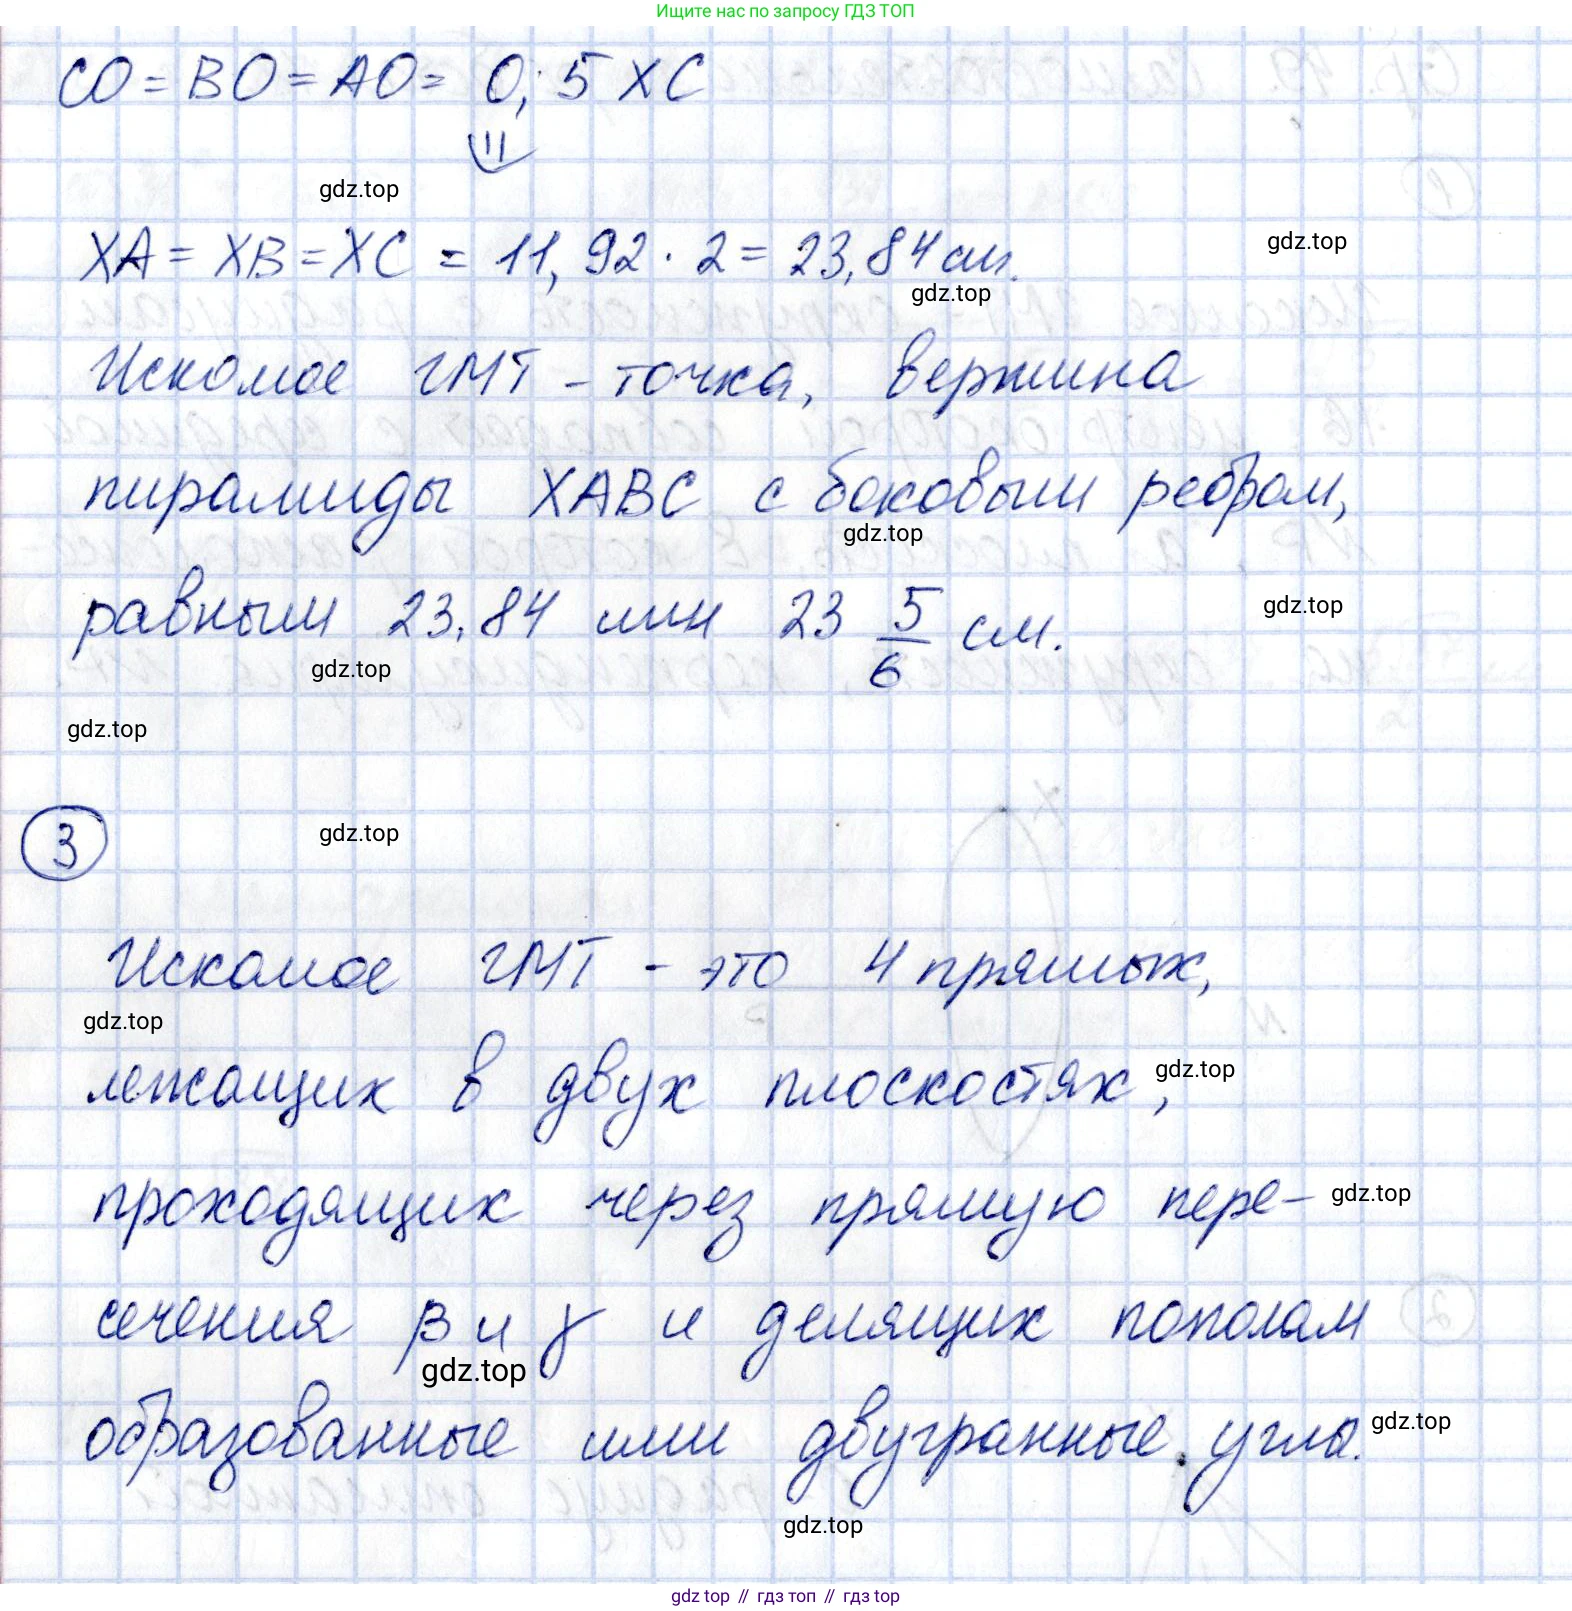 Ищите нас по запросу ГДЗ ТОП
CO = BO = AO = 0,5 XC
⇓
gdz.top
XA = XB = XC = 11,92 · 2 = 23,84 см.
gdz.top
gdz.top
Искомое ГМТ - точка, вершина
пирамиды XABC с боковым ребром,
gdz.top
равным 23,84 или 23 5/6 см.
gdz.top
gdz.top
gdz.top
3
gdz.top
Искомое ГМТ - это 4 прямых,
gdz.top
лежащих в двух плоскостях,
gdz.top
проходящих через прямую пере-
gdz.top
сечения β и γ и делящих пополам
gdz.top
образованные ими двугранные угла.
gdz.top
gdz.top
gdz top // гдз топ // гдз top